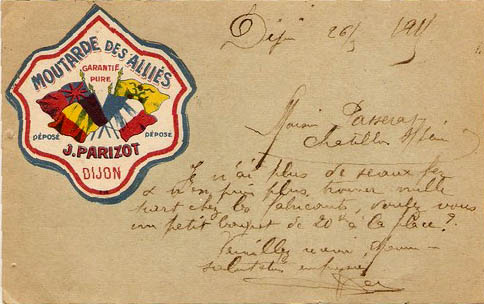 MOUTARDE DES ALLIÉS
GARANTIE
PURE
DÉPOSÉ DÉPOSÉ
J. PARIZOT
DIJON
Dijon 26/5 191
Passerat
Chatillon s/Seine
Je n'ai plus de seaux fer
& n'en puis plus trouver nulle
part chez les fabricants, voulez vous
un petit baquet de 20k à la place?
Veuillez recevoir,
salutations